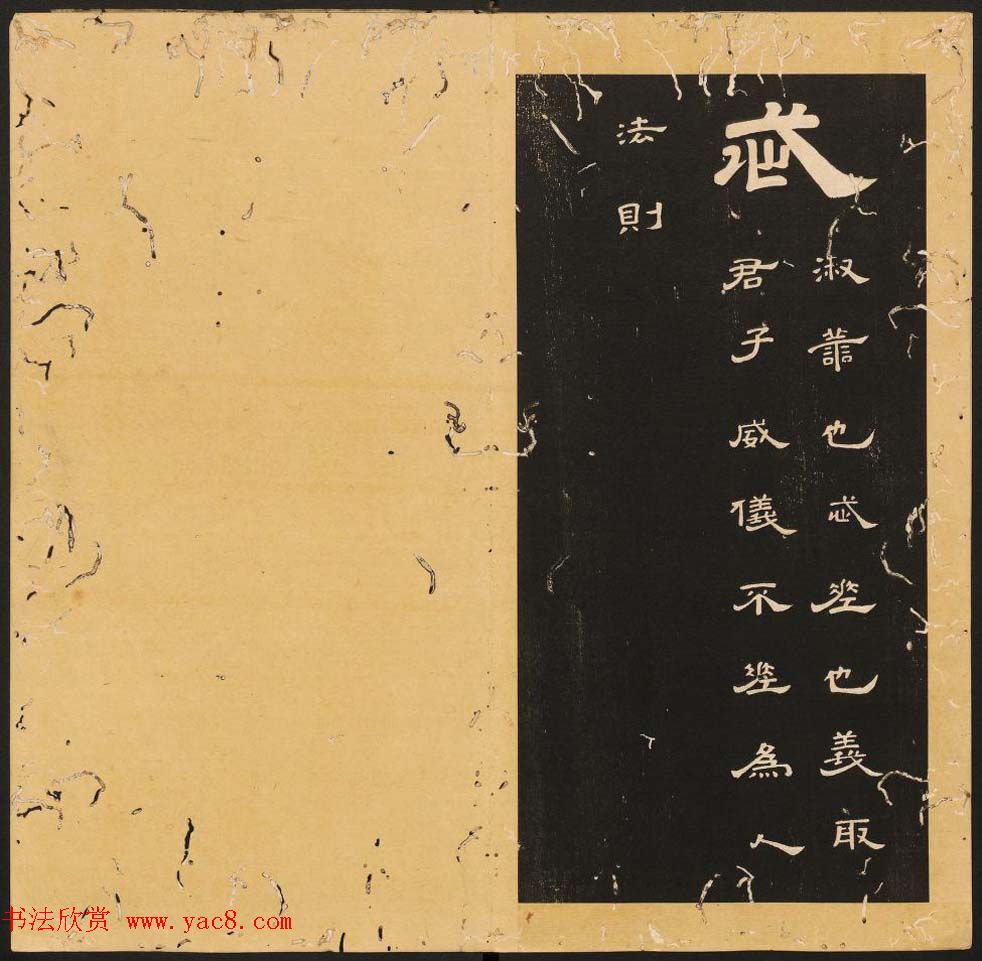 忒
淑譱也忒差也義取
君子威儀不差為人
法則
书法欣赏 www.yac8.com